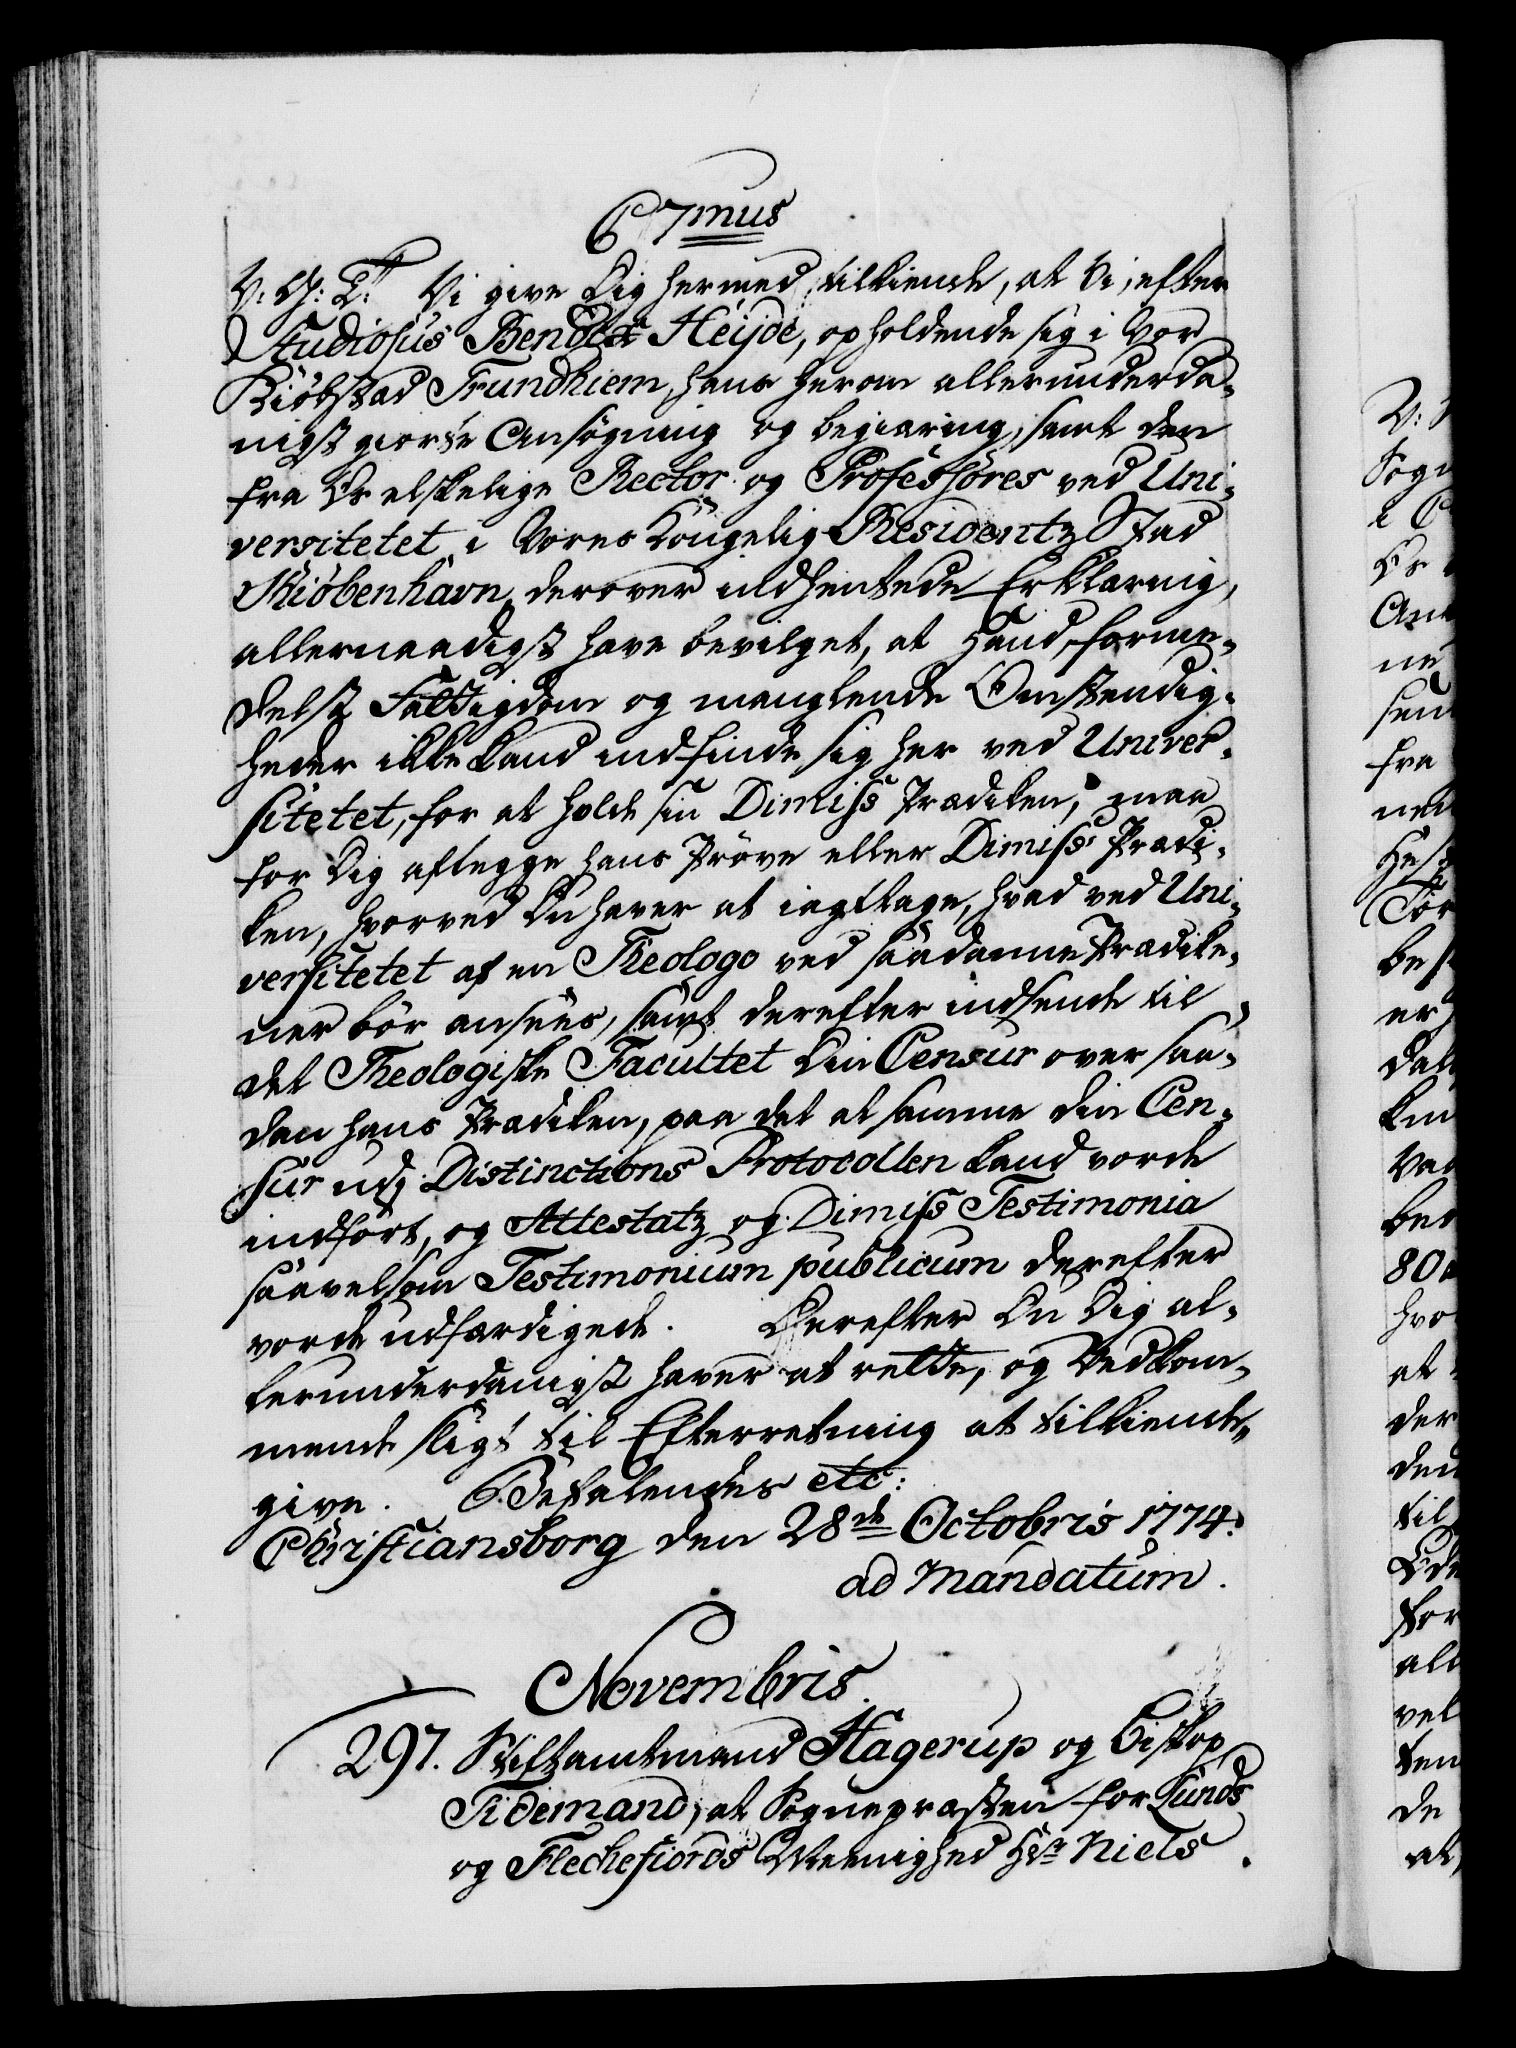 C7mus
V: G: T: Vi give Dig hermed tilkiende, at Vi, efter
Studiosus Bendix Heijde, opholdende sig i Vor
Kiöbstad Trundhiem, hans herom allerunderda-
nigst giorte Ansögning og begiæring, samt den
fra Os elskelige Rector og Professores ved Uni-
versitetet i Vores Kongelig Residentz Stad
Kiöbenhavn derover indhentede Erklæring,
allernaadigst have bevilget, at Hand, forme-
delst Fattigdom og manglende Omstændig-
heder ikke kand indfinde sig her ved Univer-
sitetet, for at holde sin Dimiss Prædiken, maa
for Dig aflegge hans Pröve eller Dimiss Prædi-
ken, hvorved Du haver at iagttage, hvad ved Uni-
versitetet af en Theologo ved saadanne Prædike-
ner bör ansees, samt derefter indsende til
det Theologiske Facultet Din Censur over saa-
dan hans Prædiken, paa det at samme din Cen-
sur udj Distinctions Protocollen kand vorde
indfört, og Attestatz og Dimiss Testimonia
saavelsom Testimonium publicum derefter
vorde udfærdigede. Derefter Du Dig al-
lerunderdanigst haver at rette, og Vedkom-
mende sligt til Efterretning at tilkiende
give. Befalendes etc:
Christiansborg den 28de Octobris 1774.
ad Mandatum.
Novembris.
297. Stiftamtmand Hagerup og Biskop
Tidemand, at Sognepræsten for Lunds
og Flechefiords Meenighed Hr. Niels